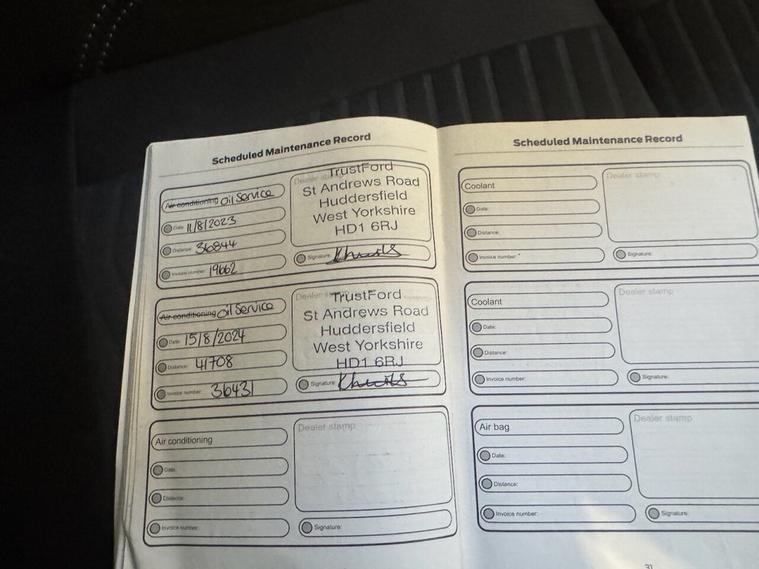 Scheduled Maintenance Record
Air conditioning Oil Service
Date: 11/8/2023
Distance: 36844
Invoice number: 19662
Dealer stamp
TrustFord
St Andrews Road
Huddersfield
West Yorkshire
HD1 6RJ
Signature:
Air conditioning Oil Service
Date: 15/8/2024
Distance: 41708
Invoice number: 36431
Dealer stamp
TrustFord
St Andrews Road
Huddersfield
West Yorkshire
HD1 6RJ
Signature:
Air conditioning
Date:
Distance:
Invoice number:
Dealer stamp
Signature:
Scheduled Maintenance Record
Coolant
Date:
Distance:
Invoice number:
Dealer stamp
Signature:
Coolant
Date:
Distance:
Invoice number:
Dealer stamp
Signature:
Air bag
Date:
Distance:
Invoice number:
Dealer stamp
Signature:
31